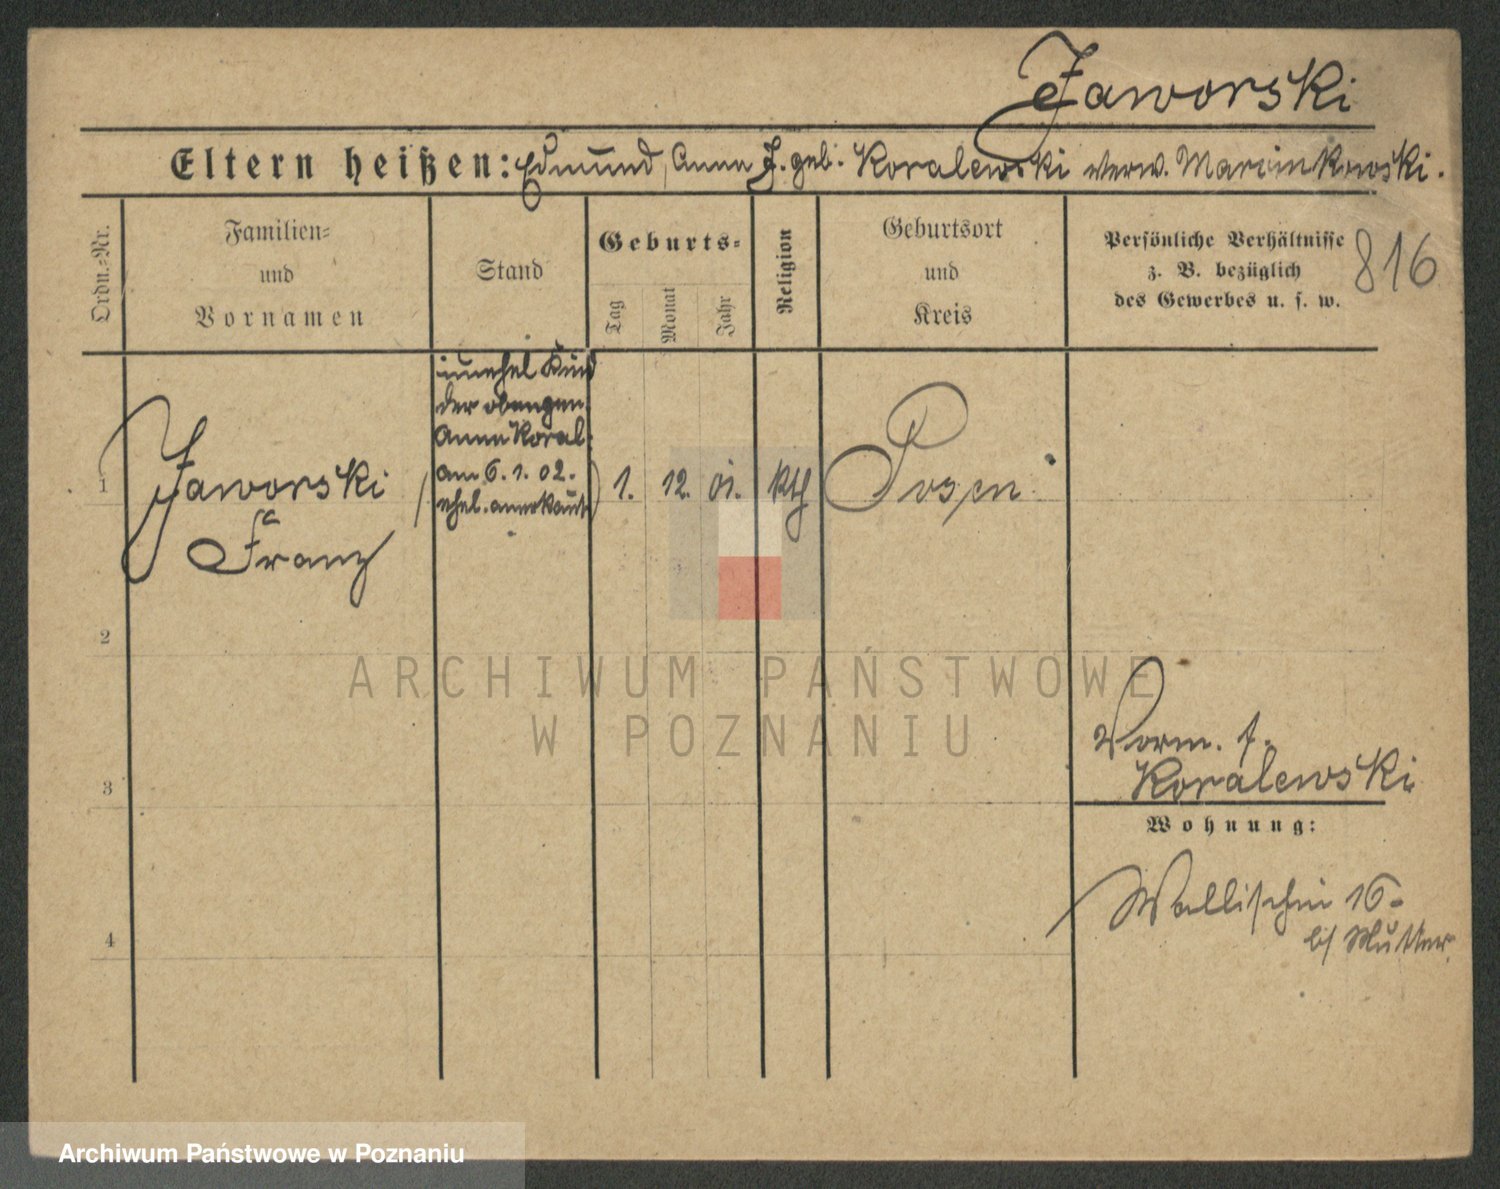 Jaworski
Eltern heißen: Edmund, Anna J. geb. Koralewski verw. Marcinkowski.
Ordn.-Nr.
Familien-
und
Vornamen
Stand
Geburts-
Tag
Monat
Jahr
Religion
Geburtsort
und
Kreis
Persönliche Verhältnisse
z. B. bezüglich
des Gewerbes u. s. w.
816
unehel Kind
der obengen.
Anna Koral.
am 6. 1. 02.
ehel. anerkannt
1
Jaworski
Franz
1. 12. 01. kth Posen
2
ARCHIWUM PAŃSTWOWE
W POZNANIU
3
Vorm. f.
Koralewski
Wohnung:
Wallischei 16
b/ Mutter.
4
Archiwum Państwowe w Poznaniu